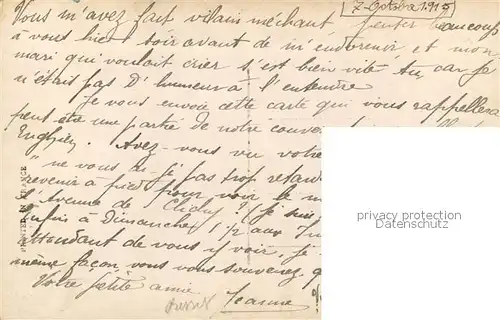 7 Octobre 1915
Vous m'avez fait vilain méchant, penser beaucoup
à vous hier soir avant de m'endormir et mon
mari qui voulait crier s'est bien vite tu, car je
n'étais pas d'humeur à l'entendre
Je vous envoie cette carte qui vous rappellera
peut-être une partie de notre
Enghien. Avez-vous vu votre
"ne vous ai-je pas trop retardé
revenir à pied pour voir le
l'Avenue de Clichy? Je suis
à Dimanche 1/2 aux
attendant de vous y voir, je
même façon, vous vous souvenez, q
Votre petite amie
Jeanne
PRINTED IN FRANCE
privacy protection
Datenschutz